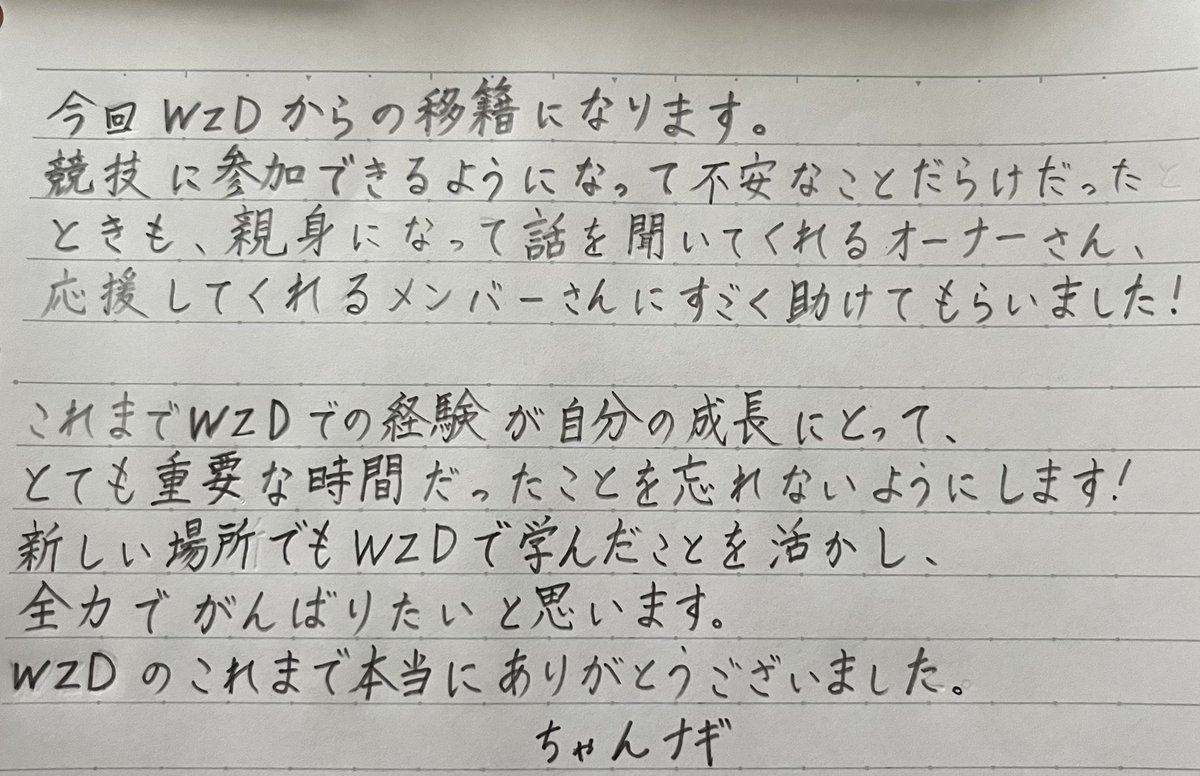 今回WZDからの移籍になります。
競技に参加できるようになって不安なことだらけだった
ときも、親身になって話を聞いてくれるオーナーさん、
応援してくれるメンバーさんにすごく助けてもらいました!
これまでWZDでの経験が自分の成長にとって、
とても重要な時間だったことを忘れないようにします!
新しい場所でもWZDで学んだことを活かし、
全力でがんばりたいと思います。
WZDのこれまで本当にありがとうございました。
ちゃんナギ